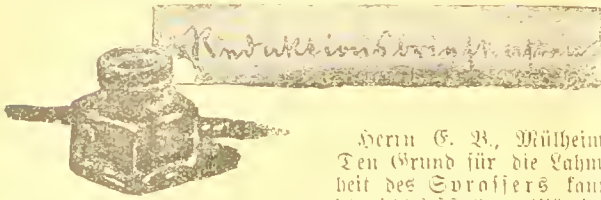 Redaktionsbriefkasten
Herrn E. B., Mülheim
Den Grund für die Lahm
heit des Sprossers kann